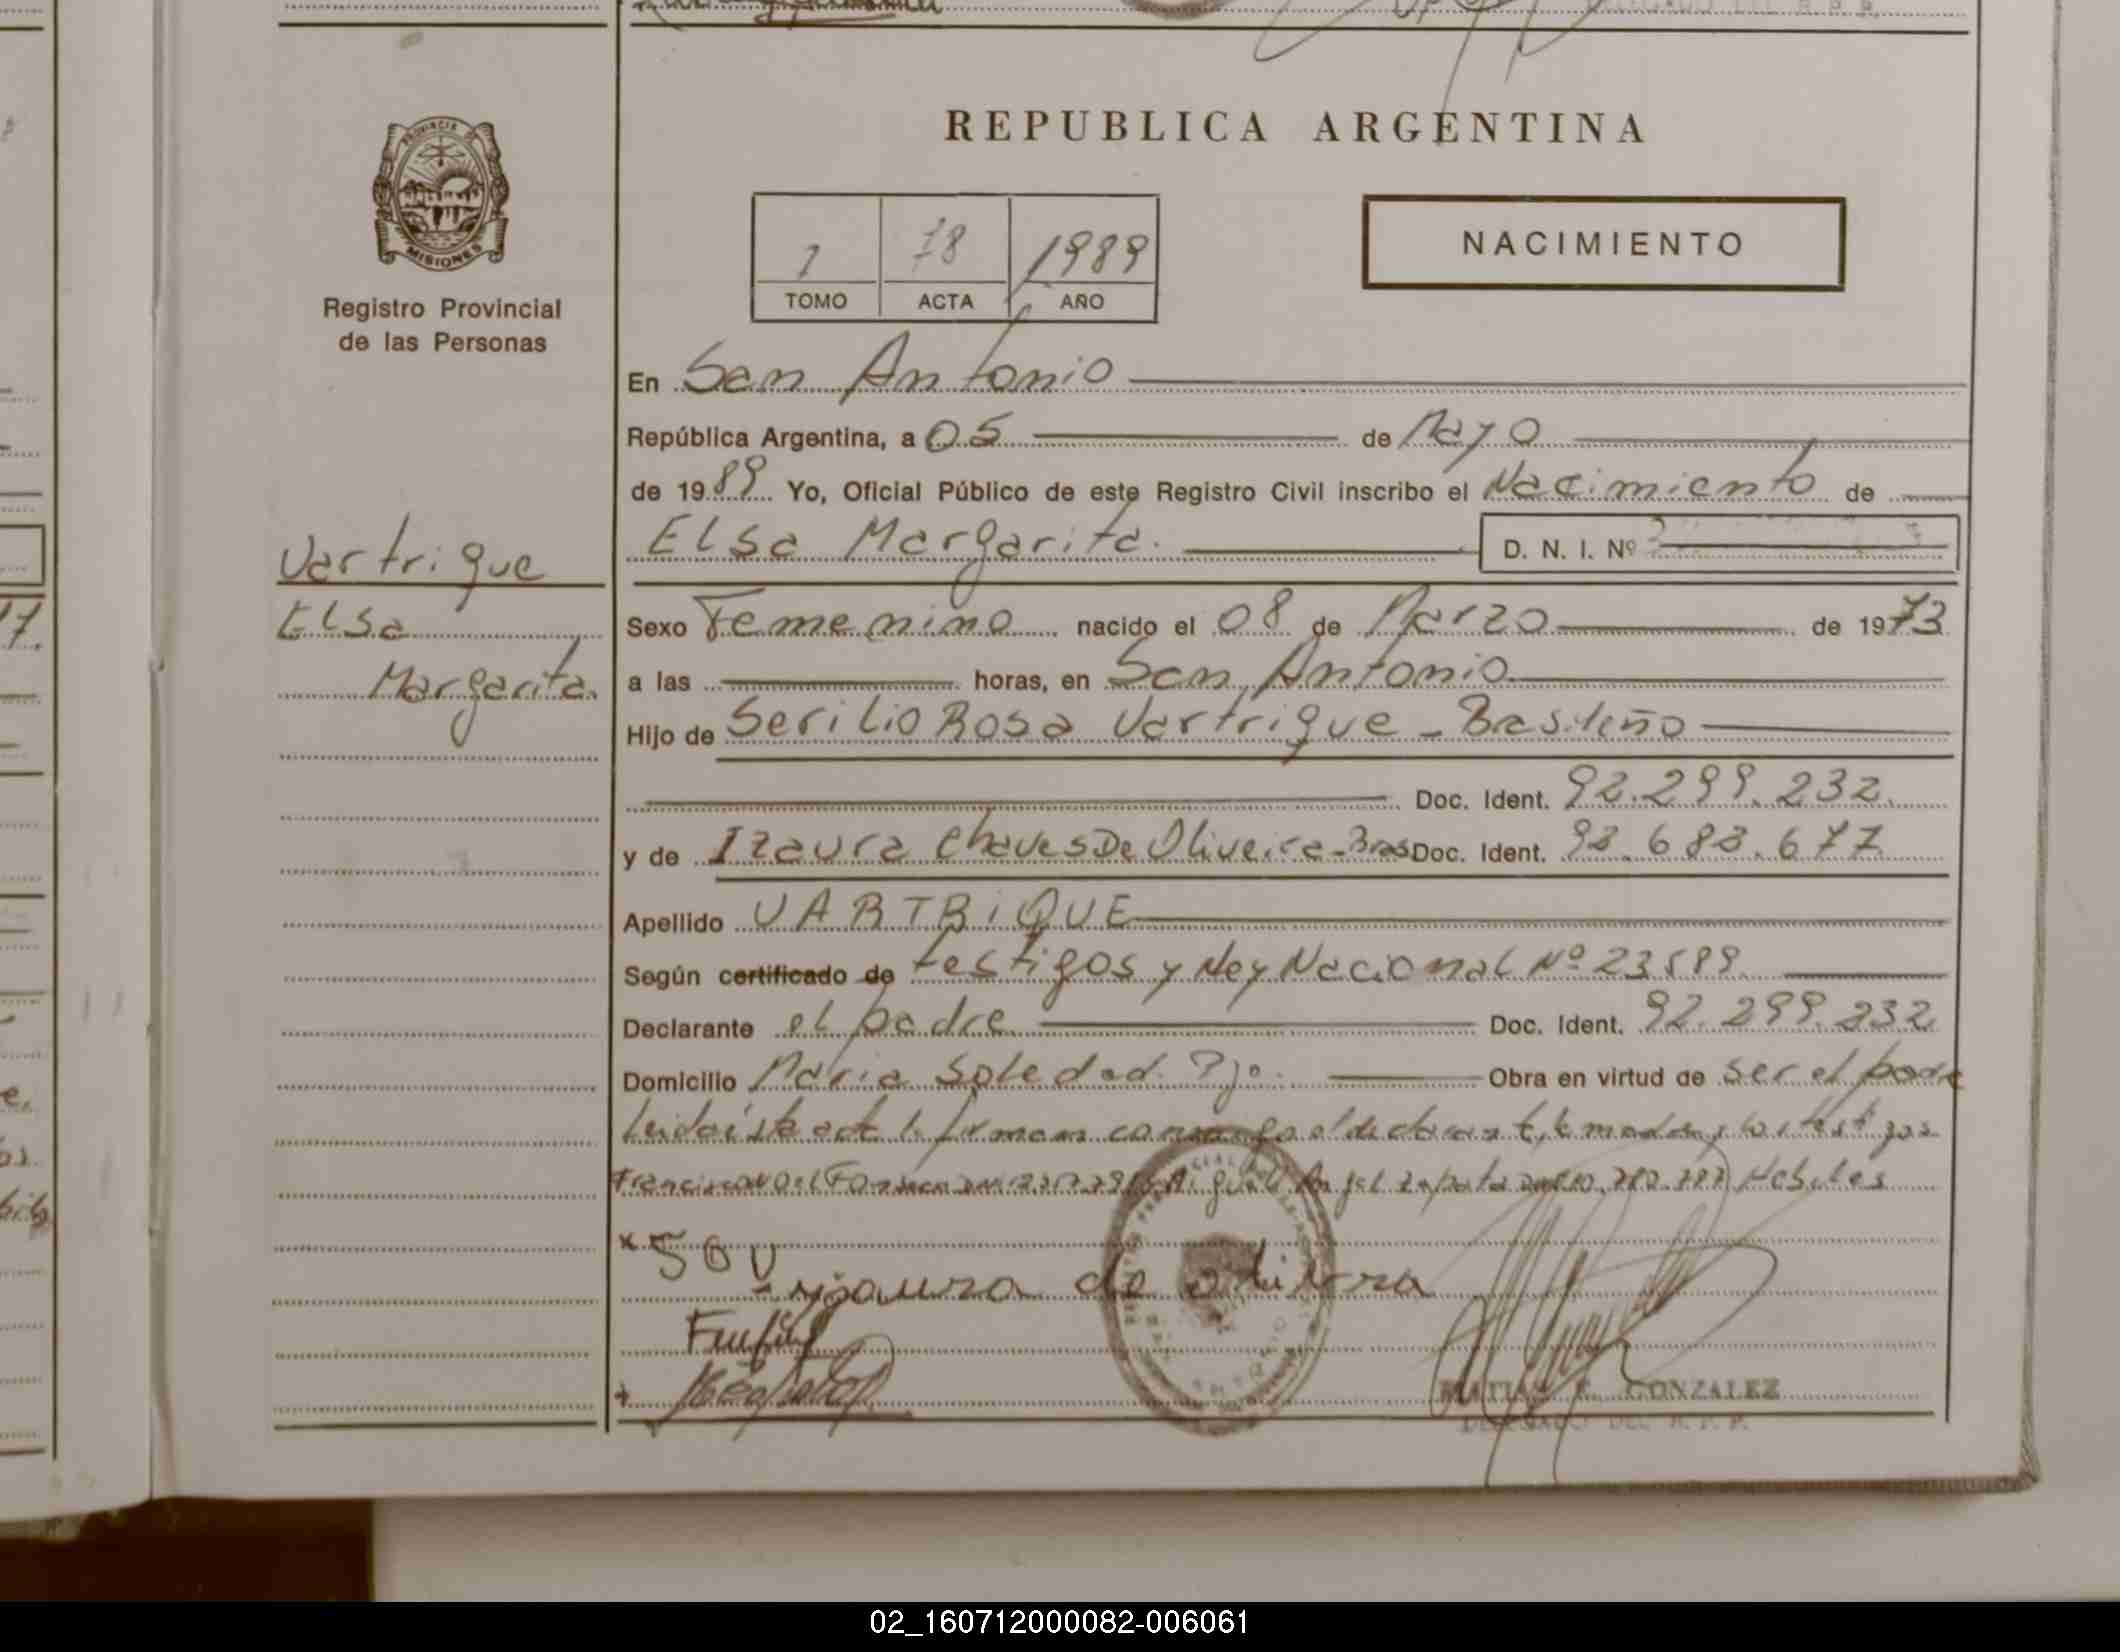 REPUBLICA ARGENTINA
PROVINCIA DE
MISIONES
Registro Provincial
de las Personas
1 78 1989
TOMO ACTA AÑO
NACIMIENTO
En San Antonio
República Argentina, a 05 de Mayo
de 1989 Yo, Oficial Público de este Registro Civil inscribo el Nacimiento de
Elsa Margarita. D. N. I. Nº
Vartrique
Elsa
Margarita.
Sexo Femenino nacido el 08 de Marzo de 1973
a las horas, en San Antonio
Hijo de Serilio Rosa Vartrique - Brasileño
Doc. Ident. 92.299.232.
y de Izaura Chaves De Oliveira - Bras Doc. Ident. 93.683.677
Apellido VARTRIQUE
Según certificado de testigos y Ley Nacional Nº 23
Declarante el padre Doc. Ident. 92.299.232
Domicilio Maria Soledad. Obra en virtud de ser el padre
Leida ésta acta la firman conmigo el declarante, la madre y los testigos
Angel Zapata Habiles
de
MATIAS GONZALEZ
DELEGADO DEL R. P. P.
02_160712000082-006061